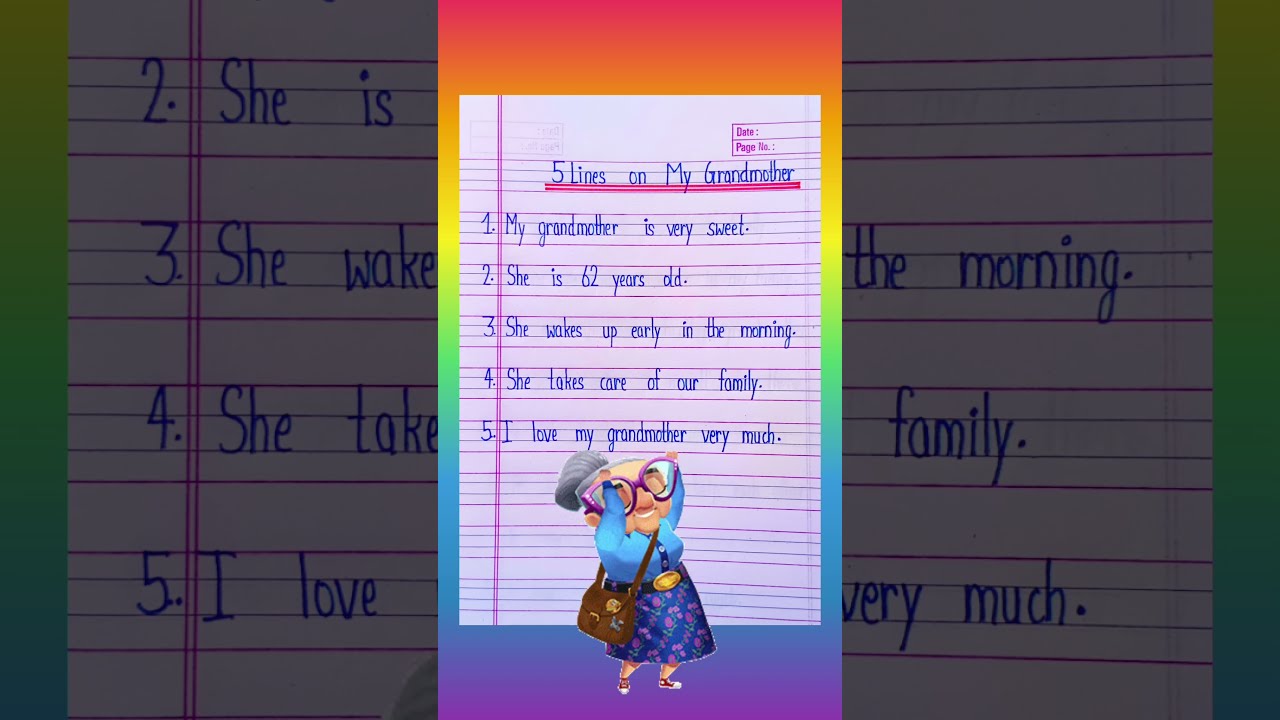 Date :
Page No. :
5 Lines on My Grandmother
1. My grandmother is very sweet.
2. She is 62 years old.
3. She wakes up early in the morning.
4. She takes care of our family.
5. I love my grandmother very much.